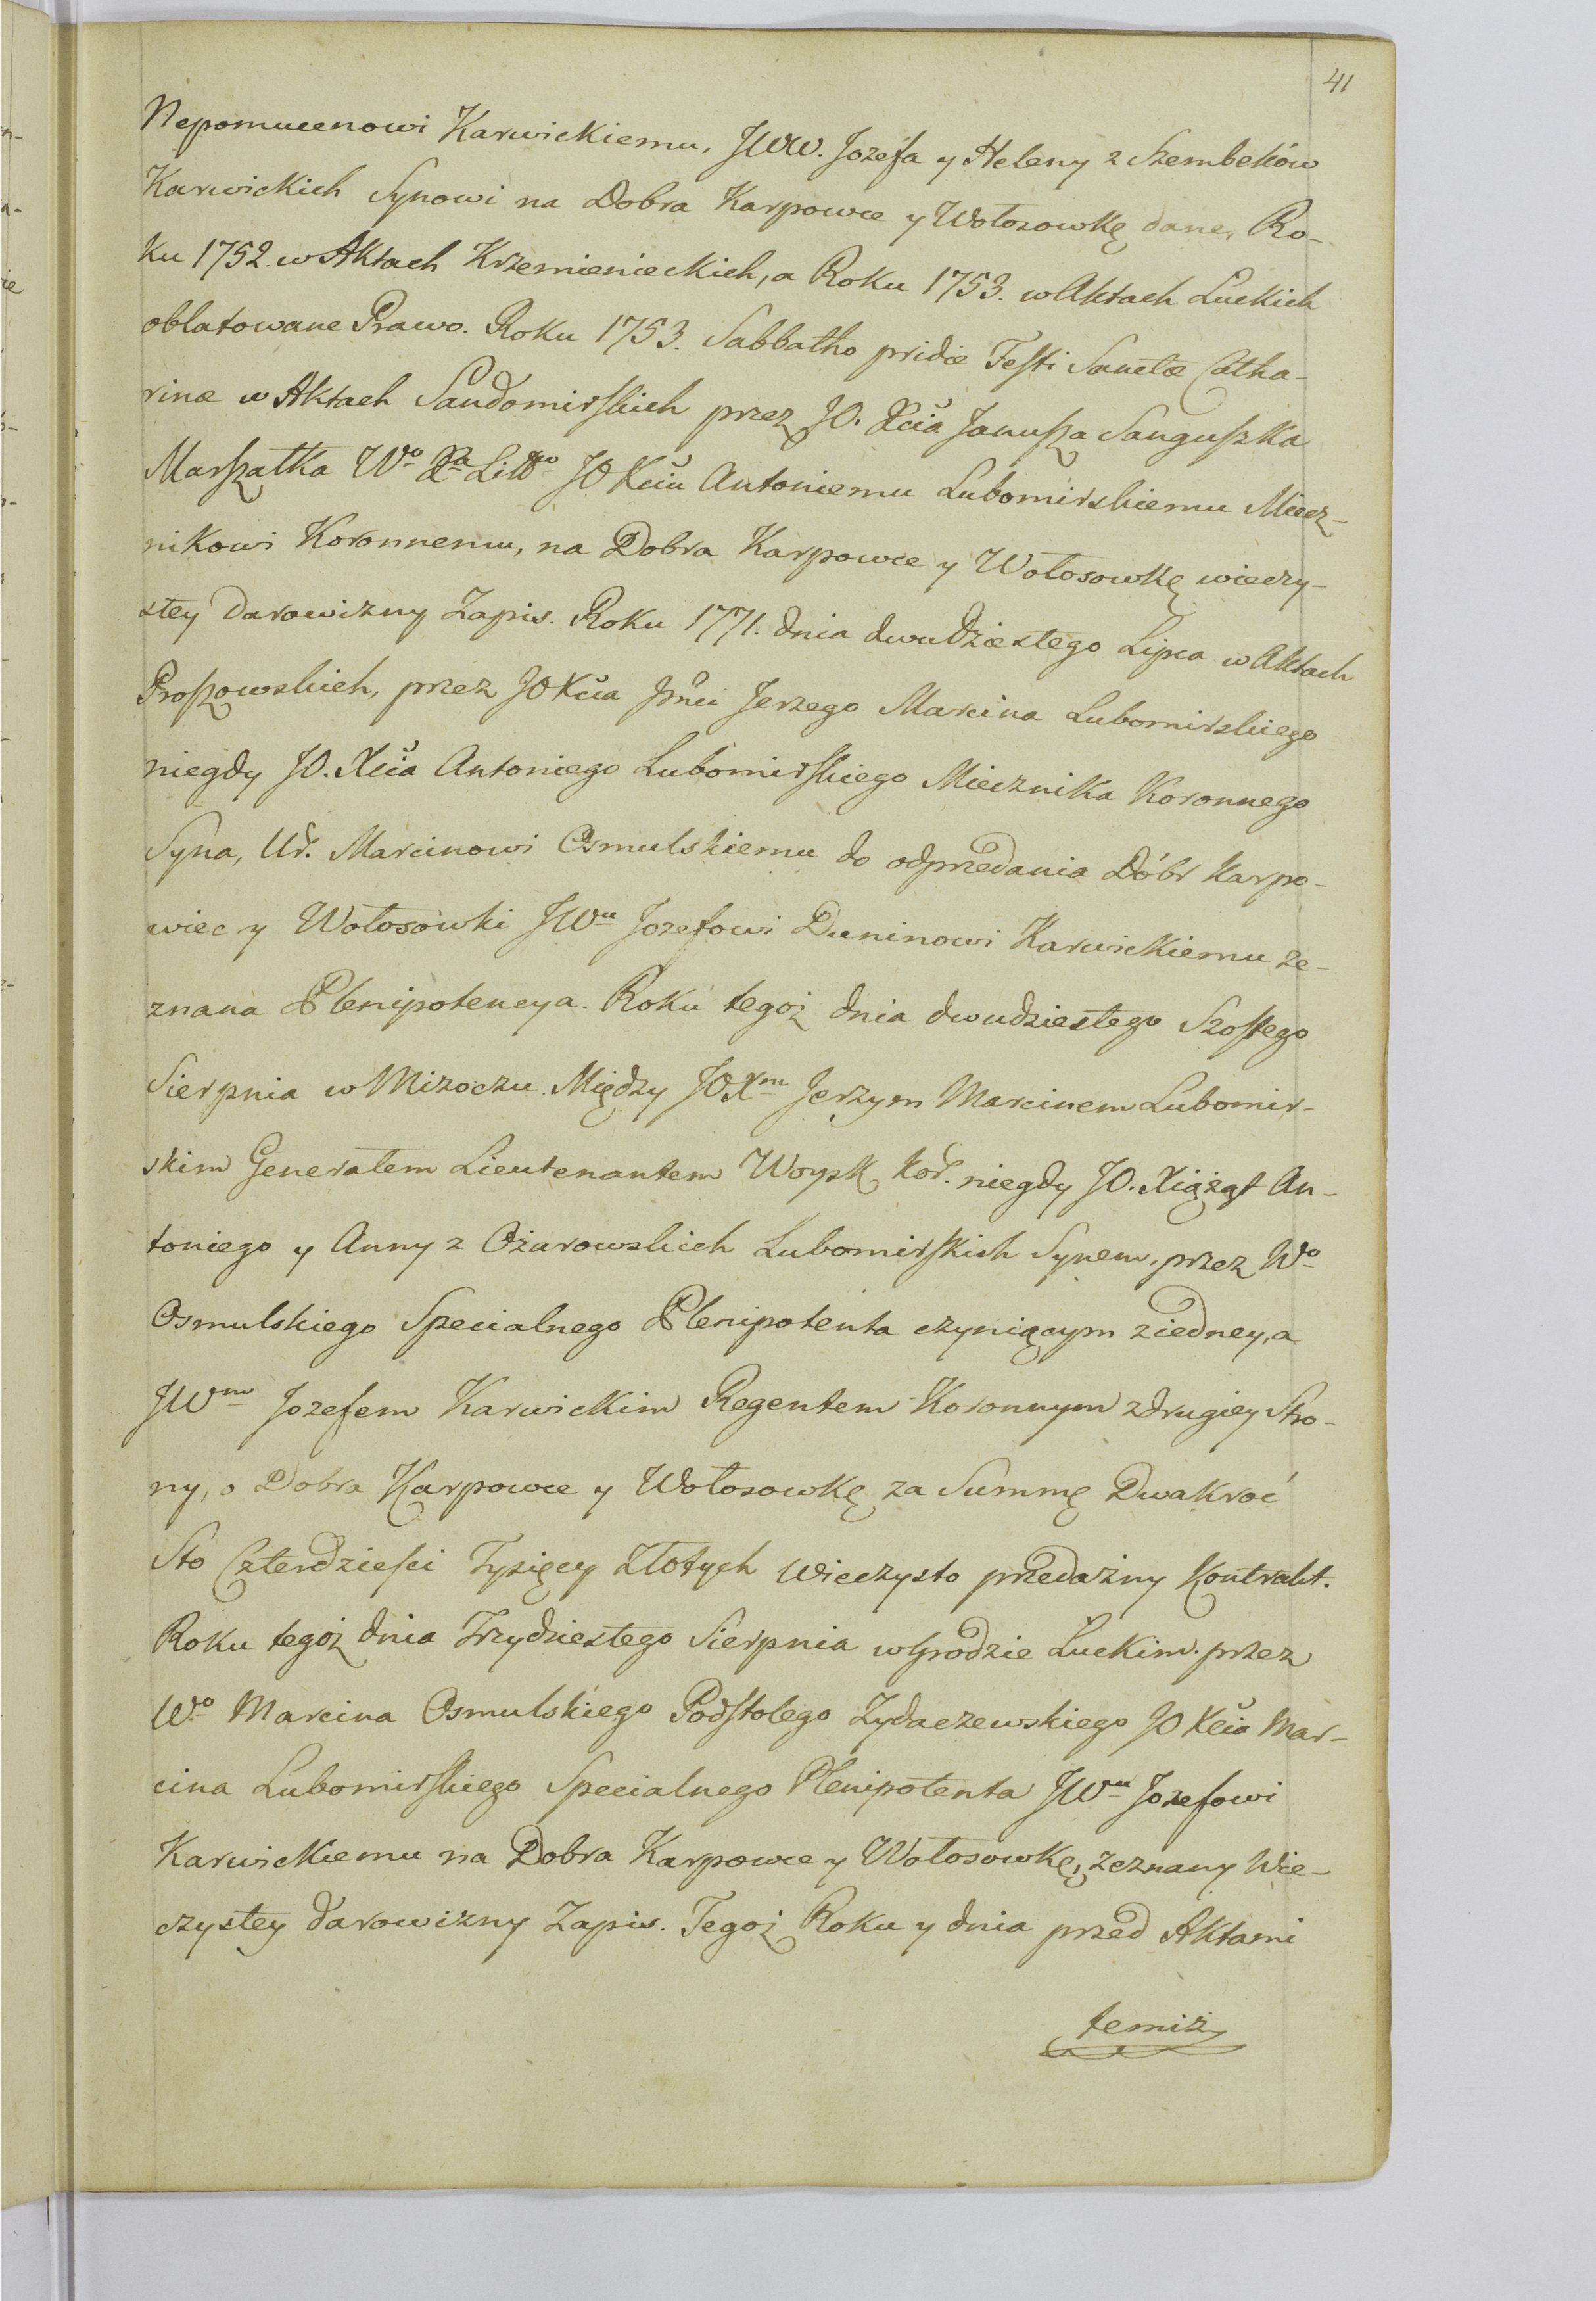 41
Nepomucenowi Karwickiemu, JWW. Jozefa y Heleny z Szembeków
Karwickich Synowi na Dobra Karpowce y Wołosowkę dane, Ro-
ku 1752. w Aktach Krzemienieckich, a Roku 1753. w Aktach Łuckich
oblatowane Prawo. Roku 1753. Sabbatho pridie Festi Sanctæ Catha-
rinæ w Aktach Sandomirskich przez JO. Xcia Janusza Sanguszka
Marszałka Wo Xa Litto JO Xciu Antoniemu Lubomirskiemu Miecz-
nikowi Koronnemu, na Dobra Karpowce y Wołosowkę wieczy-
stey Darowizny Zapis. Roku 1771. dnia dwudziestego Lipca w Aktach
Proszowskich, przez JO Xcia Jmci Jerzego Marcina Lubomirskiego
niegdy JO. Xcia Antoniego Lubomirskiego Miecznika Koronnego
Syna, Ur. Marcinowi Osmulskiemu do odprzedania Dóbr Karpo-
wiec y Wołosowki JWu Jozefowi Duninowi Karwickiemu ze-
znana Plenipotencya. Roku tegoż dnia dwudziestego Szostego
Sierpnia w Mizoczu. Między JOXm Jerzym Marcinem Lubomir-
skim Generałem Lieutenantem Woysk Kor. niegdy JO. Xiążąt An-
toniego y Anny z Ożarowskich Lubomirskich Synem, przez Wo
Osmulskiego Specialnego Plenipotenta czyniącym z iedney, a
JWm Jozefem Karwickim Regentem Koronnym z drugiey Stro-
ny, o Dobra Karpowce y Wołosowkę za Summę Dwakroć
Sto Czterdzieści Tysięcy Złotych Wieczysto przedażny Kontrakt.
Roku tegoż dnia Trzydziestego Sierpnia w Grodzie Łuckim. przez
Wo Marcina Osmulskiego Podstolego Zydaczewskiego JO Xcia Mar-
cina Lubomirskiego Specialnego Plenipotenta JWu Jozefowi
Karwickiemu na Dobra Karpowce y Wołosowkę, zeznany Wie-
czystey darowizny Zapis. Tegoż Roku y dnia przed Aktami
temiż